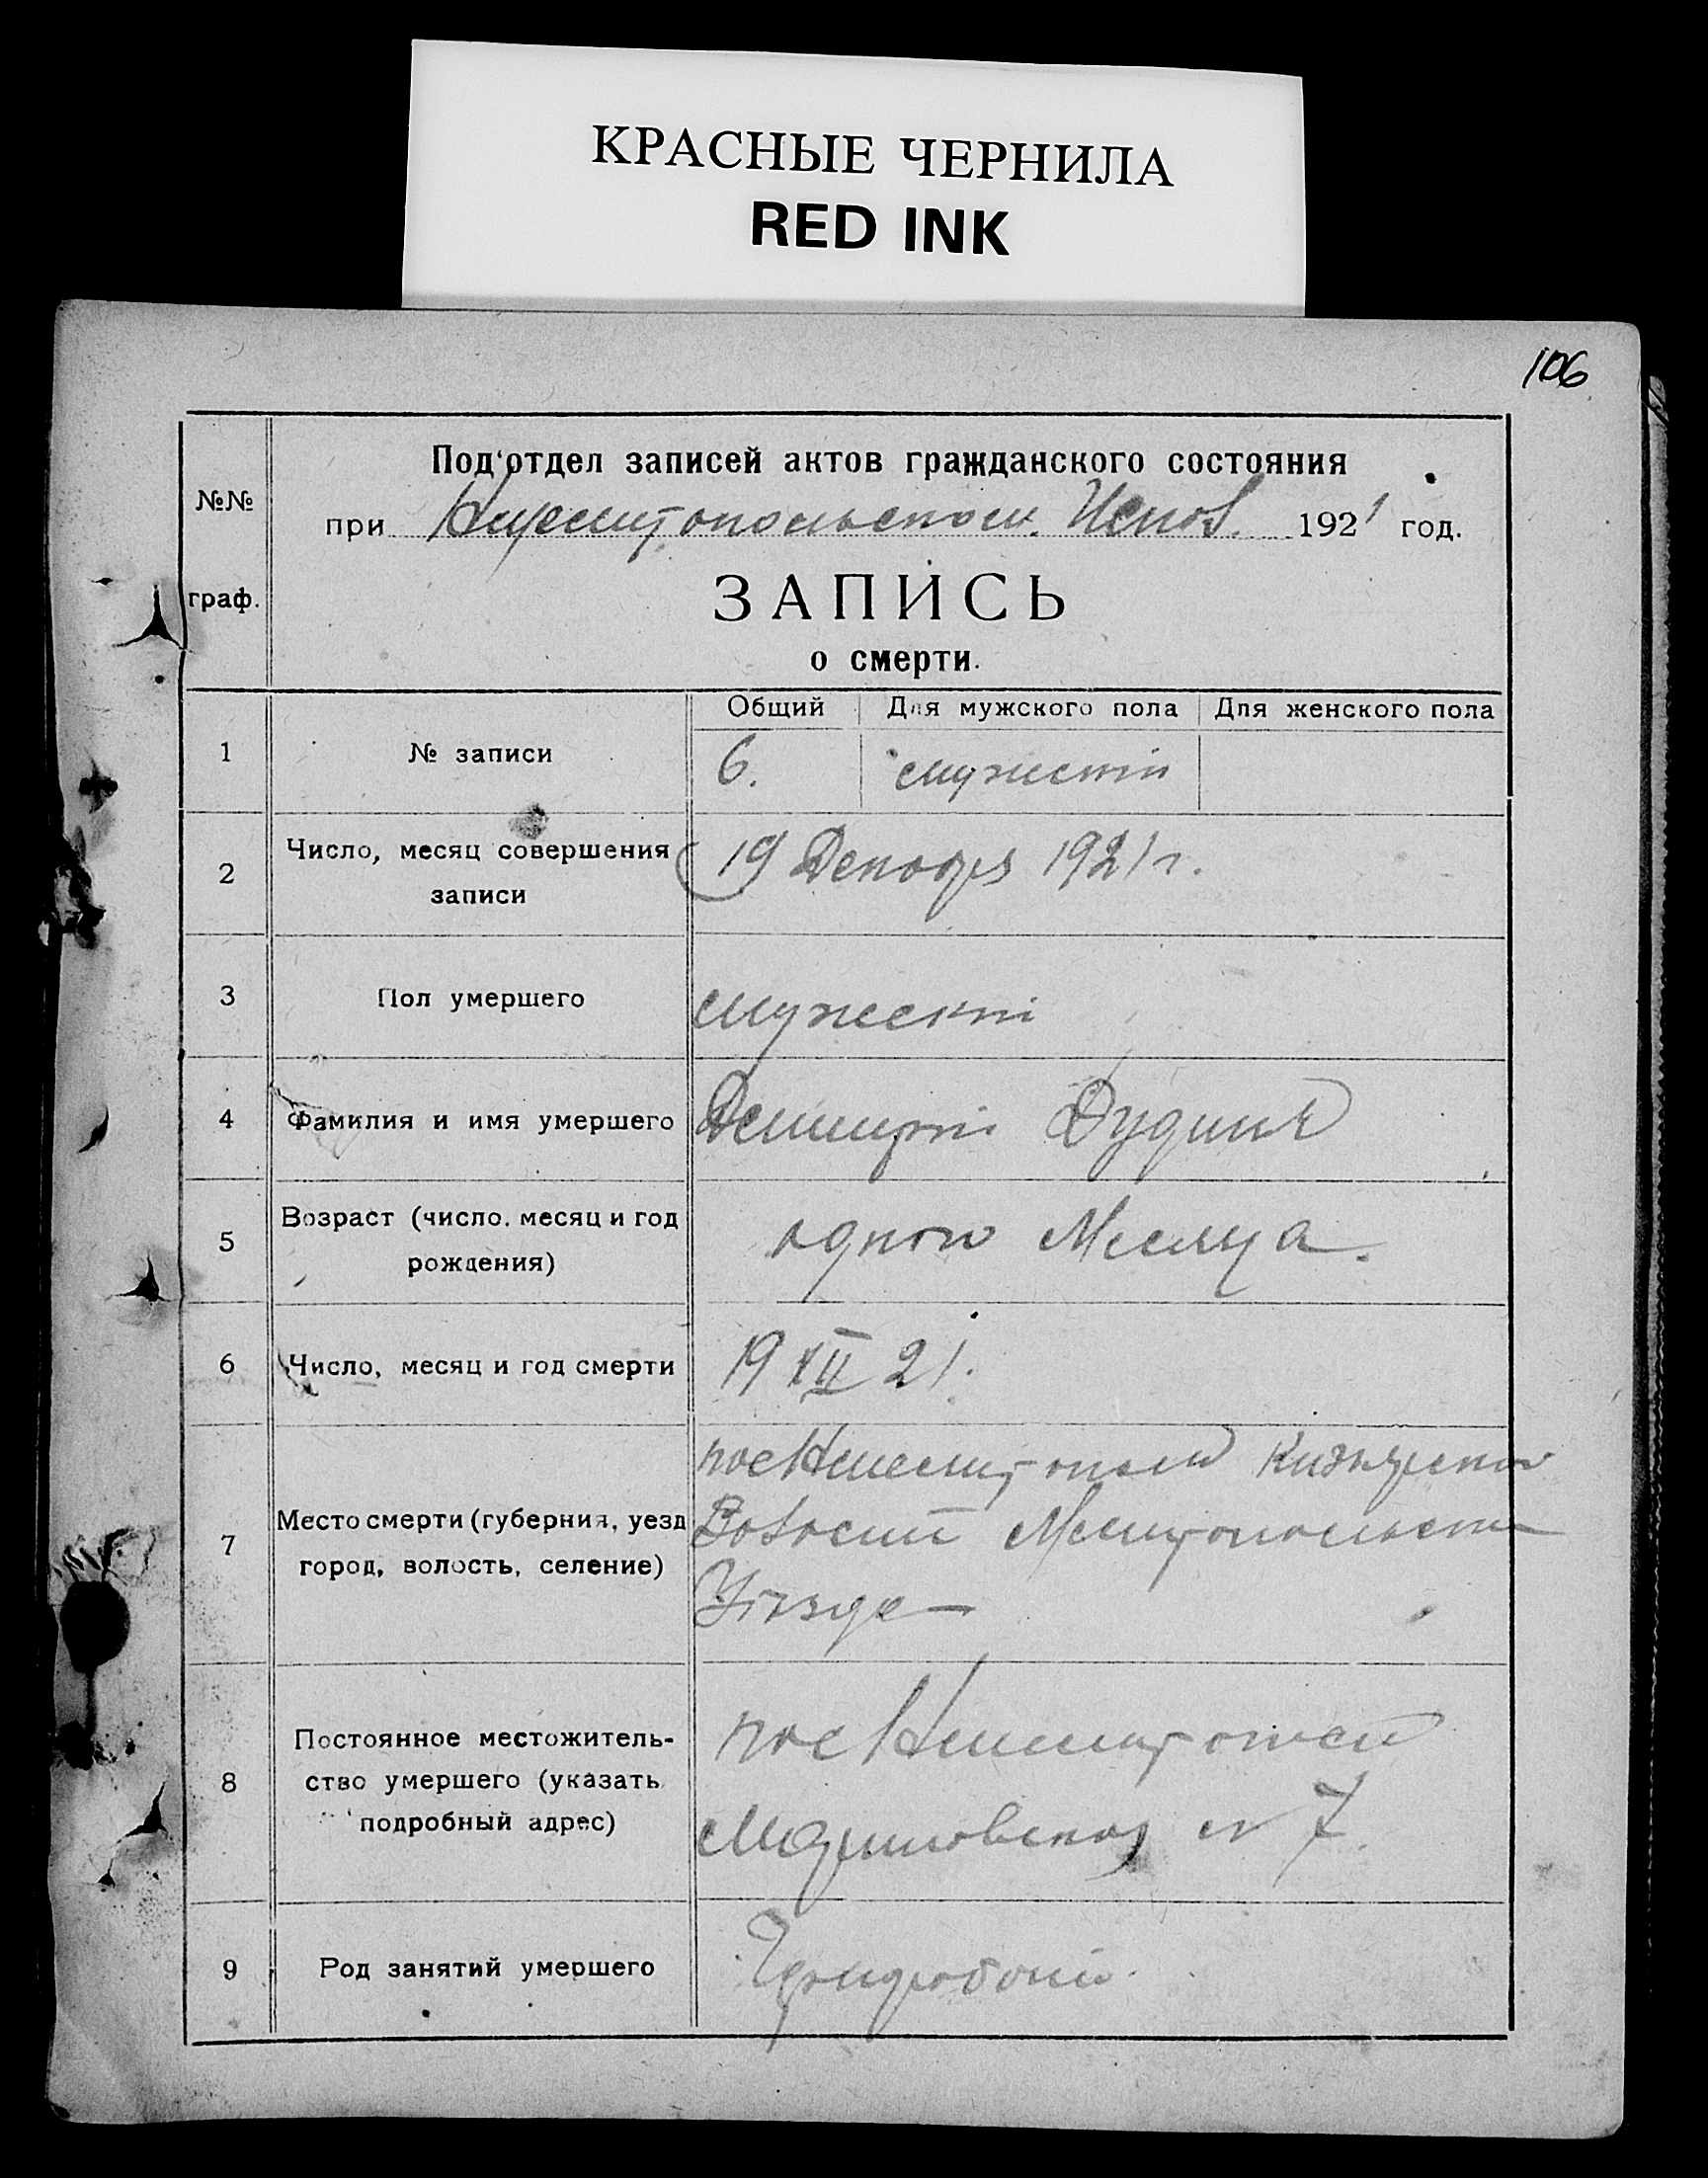 КРАСНЫЕ ЧЕРНИЛА
RED INK
106
Под‘отдел записей актов гражданского состояния
№№
при 1921 год.
граф.
ЗАПИСЬ
о смерти.
Общий Для мужского пола Для женского пола
1 № записи 6. мужскій
2 Число, месяц совершения записи 19 Декабря 1921 г.
3 Пол умершего мужескій
4 Фамилия и имя умершего Демитрій Дудник
5 Возраст (число. месяц и год рождения) одного Месяца.
6 Число, месяц и год смерти 19 XII 21.
7 Место смерти (губерния, уезд город, волость, селение) пос
Волости Мелитопольск
Уѣзда
8 Постоянное местожительство умершего (указать подробный адрес) пос
№ 7
9 Род занятий умершего